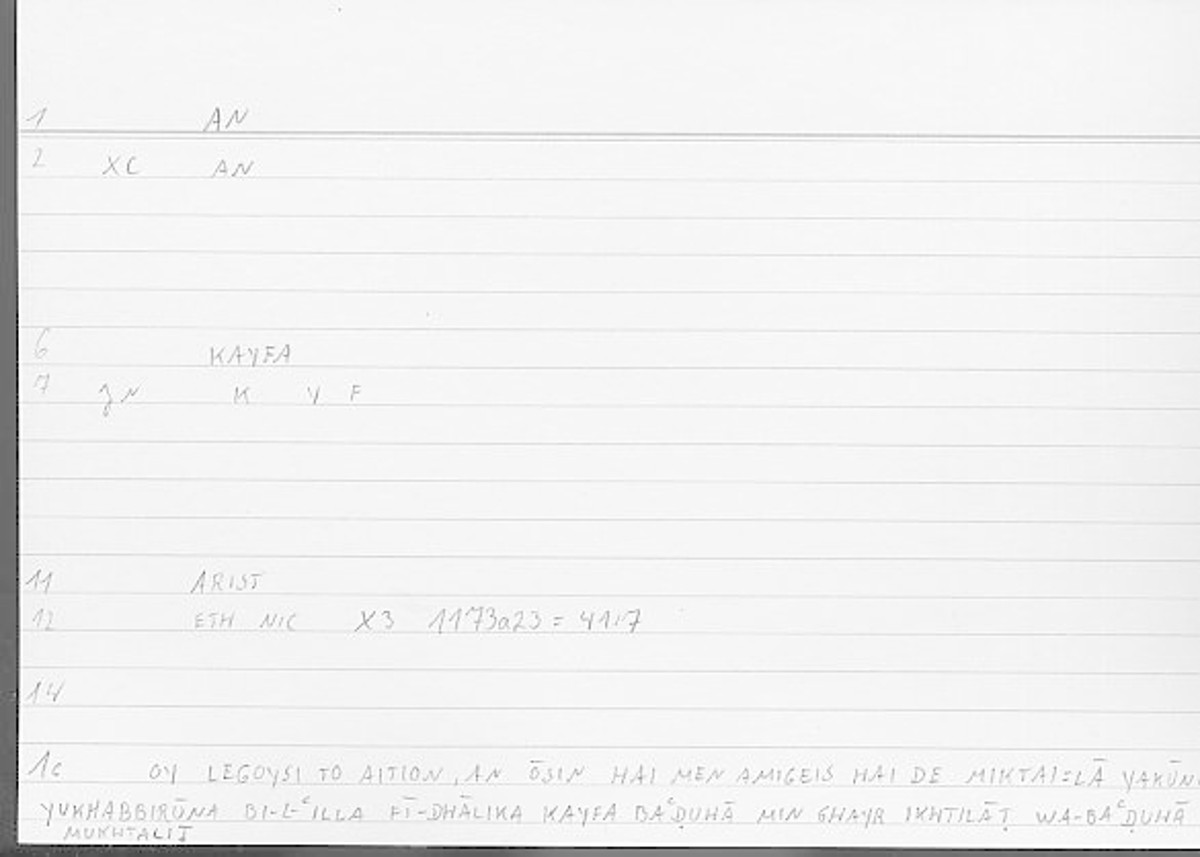 1 AN
2 XC AN
6 KAYFA
7 gN K Y F
11 ARIST
12 ETH NIC X3 1173a23 = 41:7
14
1c OY LEGOYSI TO AITION, AN ŌSIN HAI MEN AMIGEIS HAI DE MIKTAI=LĀ YAKŪN
YUKHABBIRŪNA BI-L-ʿILLA FĪ-DHĀLIKA KAYFA BAʿḌUHĀ MIN GHAYR IKHTILĀṬ WA-BAʿḌUHĀ
MUKHTALIṬ